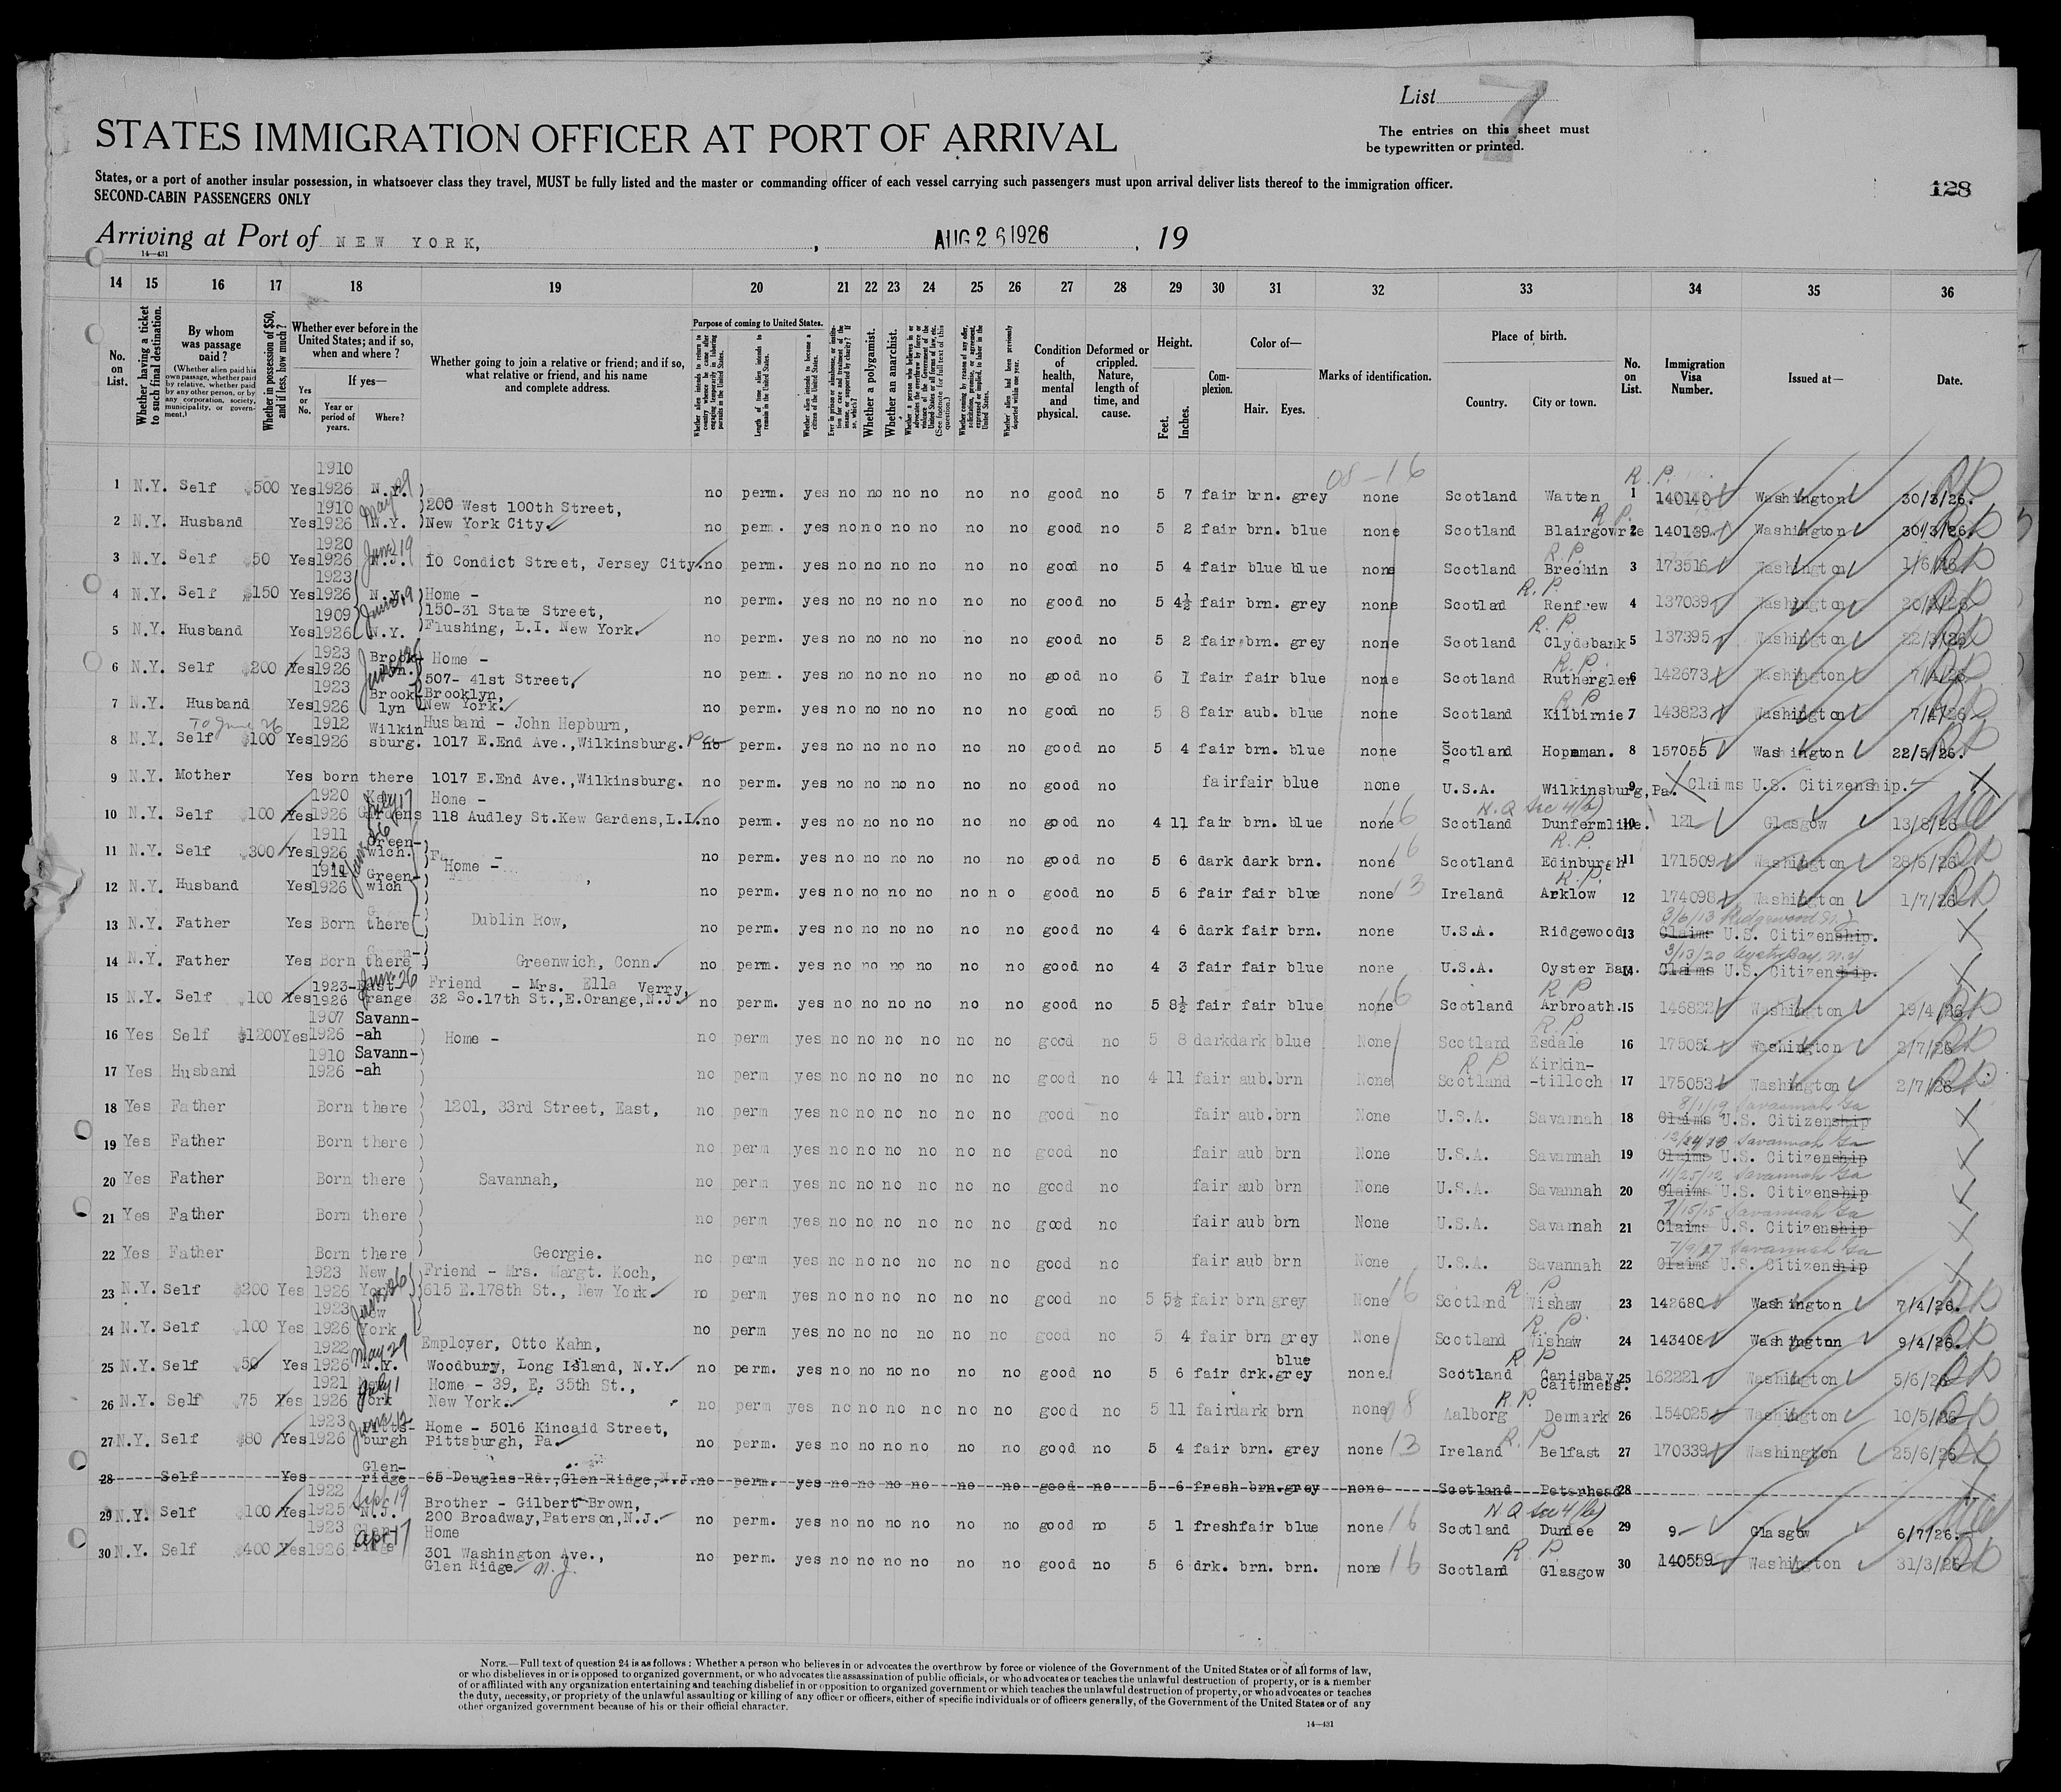 List 7
The entries on this sheet must
be typewritten or printed.
STATES IMMIGRATION OFFICER AT PORT OF ARRIVAL
States, or a port of another insular possession, in whatsoever class they travel, MUST be fully listed and the master or commanding officer of each vessel carrying such passengers must upon arrival deliver lists thereof to the immigration officer.
SECOND-CABIN PASSENGERS ONLY
128
Arriving at Port of NEW YORK, , AUG 26 1926 , 19
14—431
14 15 16 17 18 19 20 21 22 23 24 25 26 27 28 29 30 31 32 33 34 35 36
No. on List.
Whether having a ticket to such final destination.
By whom was passage paid?
(Whether alien paid his own passage, whether paid by relative, whether paid by any other person, or by any corporation, society, municipality, or government.)
Whether in possession of $50, and if less, how much?
Whether ever before in the United States; and if so, when and where?
If yes—
Yes or No.
Year or period of years.
Where?
Whether going to join a relative or friend; and if so, what relative or friend, and his name and complete address.
Purpose of coming to United States.
Length of time alien intends to remain in the United States.
Whether alien intends to become a citizen of the United States.
Whether a polygamist.
Whether an anarchist.
Condition of health, mental and physical.
Deformed or crippled. Nature, length of time, and cause.
Height.
Feet.
Inches.
Complexion.
Color of—
Hair.
Eyes.
Marks of identification.
Place of birth.
Country.
City or town.
No. on List.
Immigration Visa Number.
Issued at—
Date.
08-16
1 N.Y. Self $500 Yes 1910 1926 N.Y. May 29 no perm. yes no no no no no no good no 5 7 fair brn. grey none Scotland Watten R.P. 1 140140 Washington 30/3/26.
2 N.Y. Husband Yes 1910 1926 N.Y. 200 West 100th Street, New York City. no perm. yes no no no no no no good no 5 2 fair brn. blue none Scotland Blairgowrie R.P. 2 140139 Washington 30/3/26.
3 N.Y. Self $50 Yes 1920 1926 N.J. June 19 10 Condict Street, Jersey City. no perm. yes no no no no no no good no 5 4 fair blue blue none Scotland Brechin R.P. 3 173516 Washington 1/6/26
4 N.Y. Self $150 Yes 1923 1926 N.Y. June 19 Home - 150-31 State Street, no perm. yes no no no no no no good no 5 4½ fair brn. grey none Scotlad Renfrew R.P. 4 137039 Washington
5 N.Y. Husband Yes 1909 1926 N.Y. Flushing, L.I. New York. no perm. yes no no no no no no good no 5 2 fair brn. grey none Scotland Clydebank R.P. 5 137395 Washington 22/3/26
6 N.Y. Self $200 Yes 1923 1926 Home - 507- 41st Street, no perm. yes no no no no no no good no 6 1 fair fair blue none Scotland Rutherglen R.P. 6 142673 Washington
7 N.Y. Husband Yes 1923 1926 Brook-lyn Brooklyn, New York. no perm. yes no no no no no no good no 5 8 fair aub. blue none Scotland Kilbirnie R.P. 7 143823 Washington 7/4/26
To June 26
8 N.Y. Self $100 Yes 1912 1926 Wilkinsburg. Husband - John Hepburn, 1017 E.End Ave.,Wilkinsburg. Pa no perm. yes no no no no no no good no 5 4 fair brn. blue none Scotland Hopeman. 8 157055 Washington 22/5/26.
9 N.Y. Mother Yes born there 1017 E.End Ave.,Wilkinsburg. no perm. yes no no no no no no good no fair fair blue none U.S.A. Wilkinsburg, Pa. 9 Claims U.S. Citizenship.
10 N.Y. Self $100 Yes 1920 1926 Kew Gardens July 17 Home - 118 Audley St.Kew Gardens,L.I. no perm. yes no no no no no no good no 4 11 fair brn. blue none 16 Scotland Dunfermline. N.Q Sec 4(b) 10 121 Glasgow 13/8/26
11 N.Y. Self $300 Yes 1911 1926 Green-wich. Home - no perm. yes no no no no no no good no 5 6 dark dark brn. none 16 Scotland Edinburgh R.P. 11 171509 Washington 28/6/26
12 N.Y. Husband Yes 1911 1926 Green-wich no perm. yes no no no no no no good no 5 6 fair fair blue none 13 Ireland Arklow R.P. 12 174098 Washington 1/7/26
13 N.Y. Father Yes Born there Dublin Row, no perm. yes no no no no no no good no 4 6 dark fair brn. none U.S.A. Ridgewood 13 3/6/13 Ridgewood N.J Claims U.S. Citizenship.
14 N.Y. Father Yes Born there Greenwich, Conn. no perm. yes no no no no no no good no 4 3 fair fair blue none U.S.A. Oyster Bay. 14 3/13/20 Oyster Bay, N.Y Claims U.S. Citizenship.
15 N.Y. Self $100 Yes 1923- 1926 East Orange June 26 Friend - Mrs. Ella Verry, 32 So.17th St.,E.Orange,N.J. no perm. yes no no no no no no good no 5 8½ fair fair blue none 16 Scotland Arbroath. R P 15 146822 Washington 19/4/26
16 Yes Self $1200 Yes 1907 1926 Savann-ah Home - no perm yes no no no no no no good no 5 8 dark dark blue None Scotland Esdale R.P. 16 175052 Washington 2/7/26
17 Yes Husband 1910 1926 Savann-ah no perm yes no no no no no no good no 4 11 fair aub. brn None Scotland Kirkin-tilloch R P 17 175053 Washington 2/7/26
18 Yes Father Born there 1201, 33rd Street, East, no perm yes no no no no no no good no fair aub. brn None U.S.A. Savannah 18 8/1/19 Savannah Ga Claims U.S. Citizenship
19 Yes Father Born there no perm yes no no no no no no good no fair aub brn None U.S.A. Savannah 19 Savannah Ga Claims U.S. Citizenship
20 Yes Father Born there Savannah, no perm yes no no no no no no good no fair aub brn None U.S.A. Savannah 20 11/25/12 Savannah Ga Claims U.S. Citizenship
21 Yes Father Born there no perm yes no no no no no no good no fair aub brn None U.S.A. Savannah 21 7/15/15 Savannah Ga Claims U.S. Citizenship
22 Yes Father Born there Georgie. no perm yes no no no no no no good no fair aub brn None U.S.A. Savannah 22 Savannah Ga Claims U.S. Citizenship
23 N.Y. Self $200 Yes 1923 1926 New York Friend - Mrs. Margt. Koch, 615 E.178th St., New York. no perm yes no no no no no no good no 5 5½ fair brn grey None 16 Scotland Wishaw R P 23 142680 Washington 7/4/26.
24 N.Y. Self $100 Yes 1923 1926 New York no perm yes no no no no no no good no 5 4 fair brn grey None Scotland Wishaw R P. 24 143408 Washington 9/4/26.
25 N.Y. Self $50 Yes 1922 1926 N.Y. May 29 Employer, Otto Kahn, Woodbury, Long Island, N.Y. no perm. yes no no no no no no good no 5 6 fair drk. blue grey none. Scotland Canisbay, Caithness. R P 25 162221 Washington 5/6/26
26 N.Y. Self $75 Yes 1921 1926 New York July 1 Home - 39, E. 35th St., New York. no perm yes no no no no no no good no 5 11 fair dark brn none 08 Aalborg Denmark R.P. 26 154025 Washington 10/5/26
27 N.Y. Self $80 Yes 1923 1926 Pitts-burgh Home - 5016 Kincaid Street, Pittsburgh, Pa. no perm. yes no no no no no no good no 5 4 fair brn. grey none 13 Ireland Belfast R.P 27 170339 Washington 25/6/26
28 Self Yes Glen-ridge 65 Douglas Rd.,Glen Ridge,N.J. no perm. yes no no no no no no good no 5 6 fresh brn. grey none Scotland Peterhead 28
29 N.Y. Self $100 Yes 1922 1925 N.J. Sept 19 Brother - Gilbert Brown, 200 Broadway,Paterson,N.J. no perm. yes no no no no no no good no 5 1 fresh fair blue none 16 Scotland Dundee N.Q Sec 4(b) 29 9 Glasgow 6/7/26.
30 N.Y. Self $400 Yes 1923 1926 Glen Ridge Apr 17 Home 301 Washington Ave., Glen Ridge N.J. no perm. yes no no no no no no good no 5 6 drk. brn. brn. none 16 Scotland Glasgow R.P. 30 140559 Washington 31/3/26
NOTE.—Full text of question 24 is as follows: Whether a person who believes in or advocates the overthrow by force or violence of the Government of the United States or of all forms of law,
or who disbelieves in or is opposed to organized government, or who advocates the assassination of public officials, or who advocates or teaches the unlawful destruction of property, or is a member
of or affiliated with any organization entertaining and teaching disbelief in or opposition to organized government or which teaches the unlawful destruction of property, or who advocates or teaches
the duty, necessity, or propriety of the unlawful assaulting or killing of any officer or officers, either of specific individuals or of officers generally, of the Government of the United States or of any
other organized government because of his or their official character.
14—431